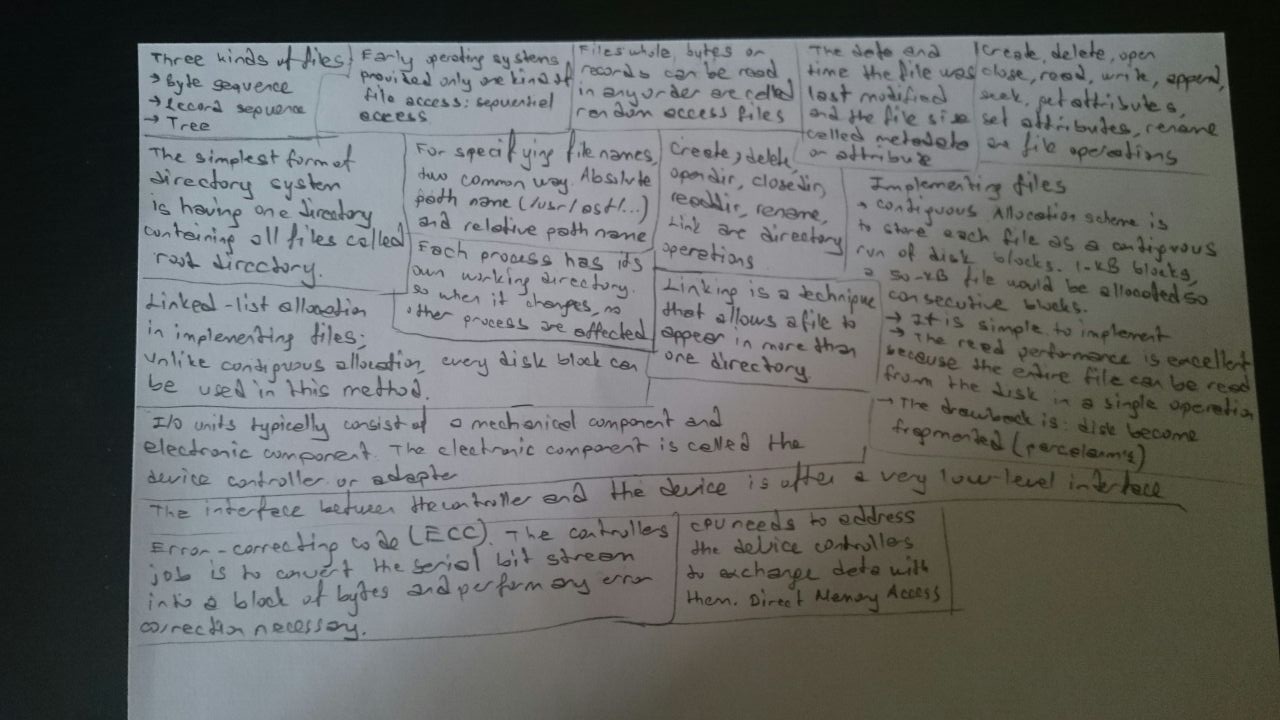 Three kinds of files
→ Byte sequence
→ Record sequence
→ Tree
Early operating systems
provided only one kind of
file access: sequential
access
Files whole, bytes or
records can be read
in any order are called
random access files
The date and
time the file was
last modified
and the file size
called metadata
or attribute
Create, delete, open
close, read, write, append,
seek, get attributes,
set attributes, rename
are file operations
The simplest form of
directory system
is having one directory
containing all files called
root directory.
For specifying file names,
two common way. Absolute
path name (/usr/ast/...)
and relative path name
Create, delete,
opendir, closedir,
readdir, rename,
Link are directory
operations
Implementing files
→ contiguous Allocation scheme is
to store each file as a contiguous
run of disk blocks. 1-kB blocks,
a 50-kB file would be allocated 50
consecutive blocks.
→ It is simple to implement
→ The read performance is excellent
because the entire file can be read
from the disk in a single operation
→ The drawback is: disk become
fragmented
Each process has its
own working directory.
so when it changes, no
other process are affected
Linking is a technique
that allows a file to
appear in more than
one directory
Linked-list allocation
in implementing files;
Unlike contiguous allocation, every disk block can
be used in this method.
I/O units typically consist of a mechanical component and
electronic component. The electronic component is called the
device controller or adapter
The interface between the controller and the device is often a very low-level interface
Error-correcting code (ECC). The controllers
job is to convert the serial bit stream
into a block of bytes and perform any error
correction necessary.
CPU needs to address
the device controllers
to exchange data with
them. Direct Memory Access